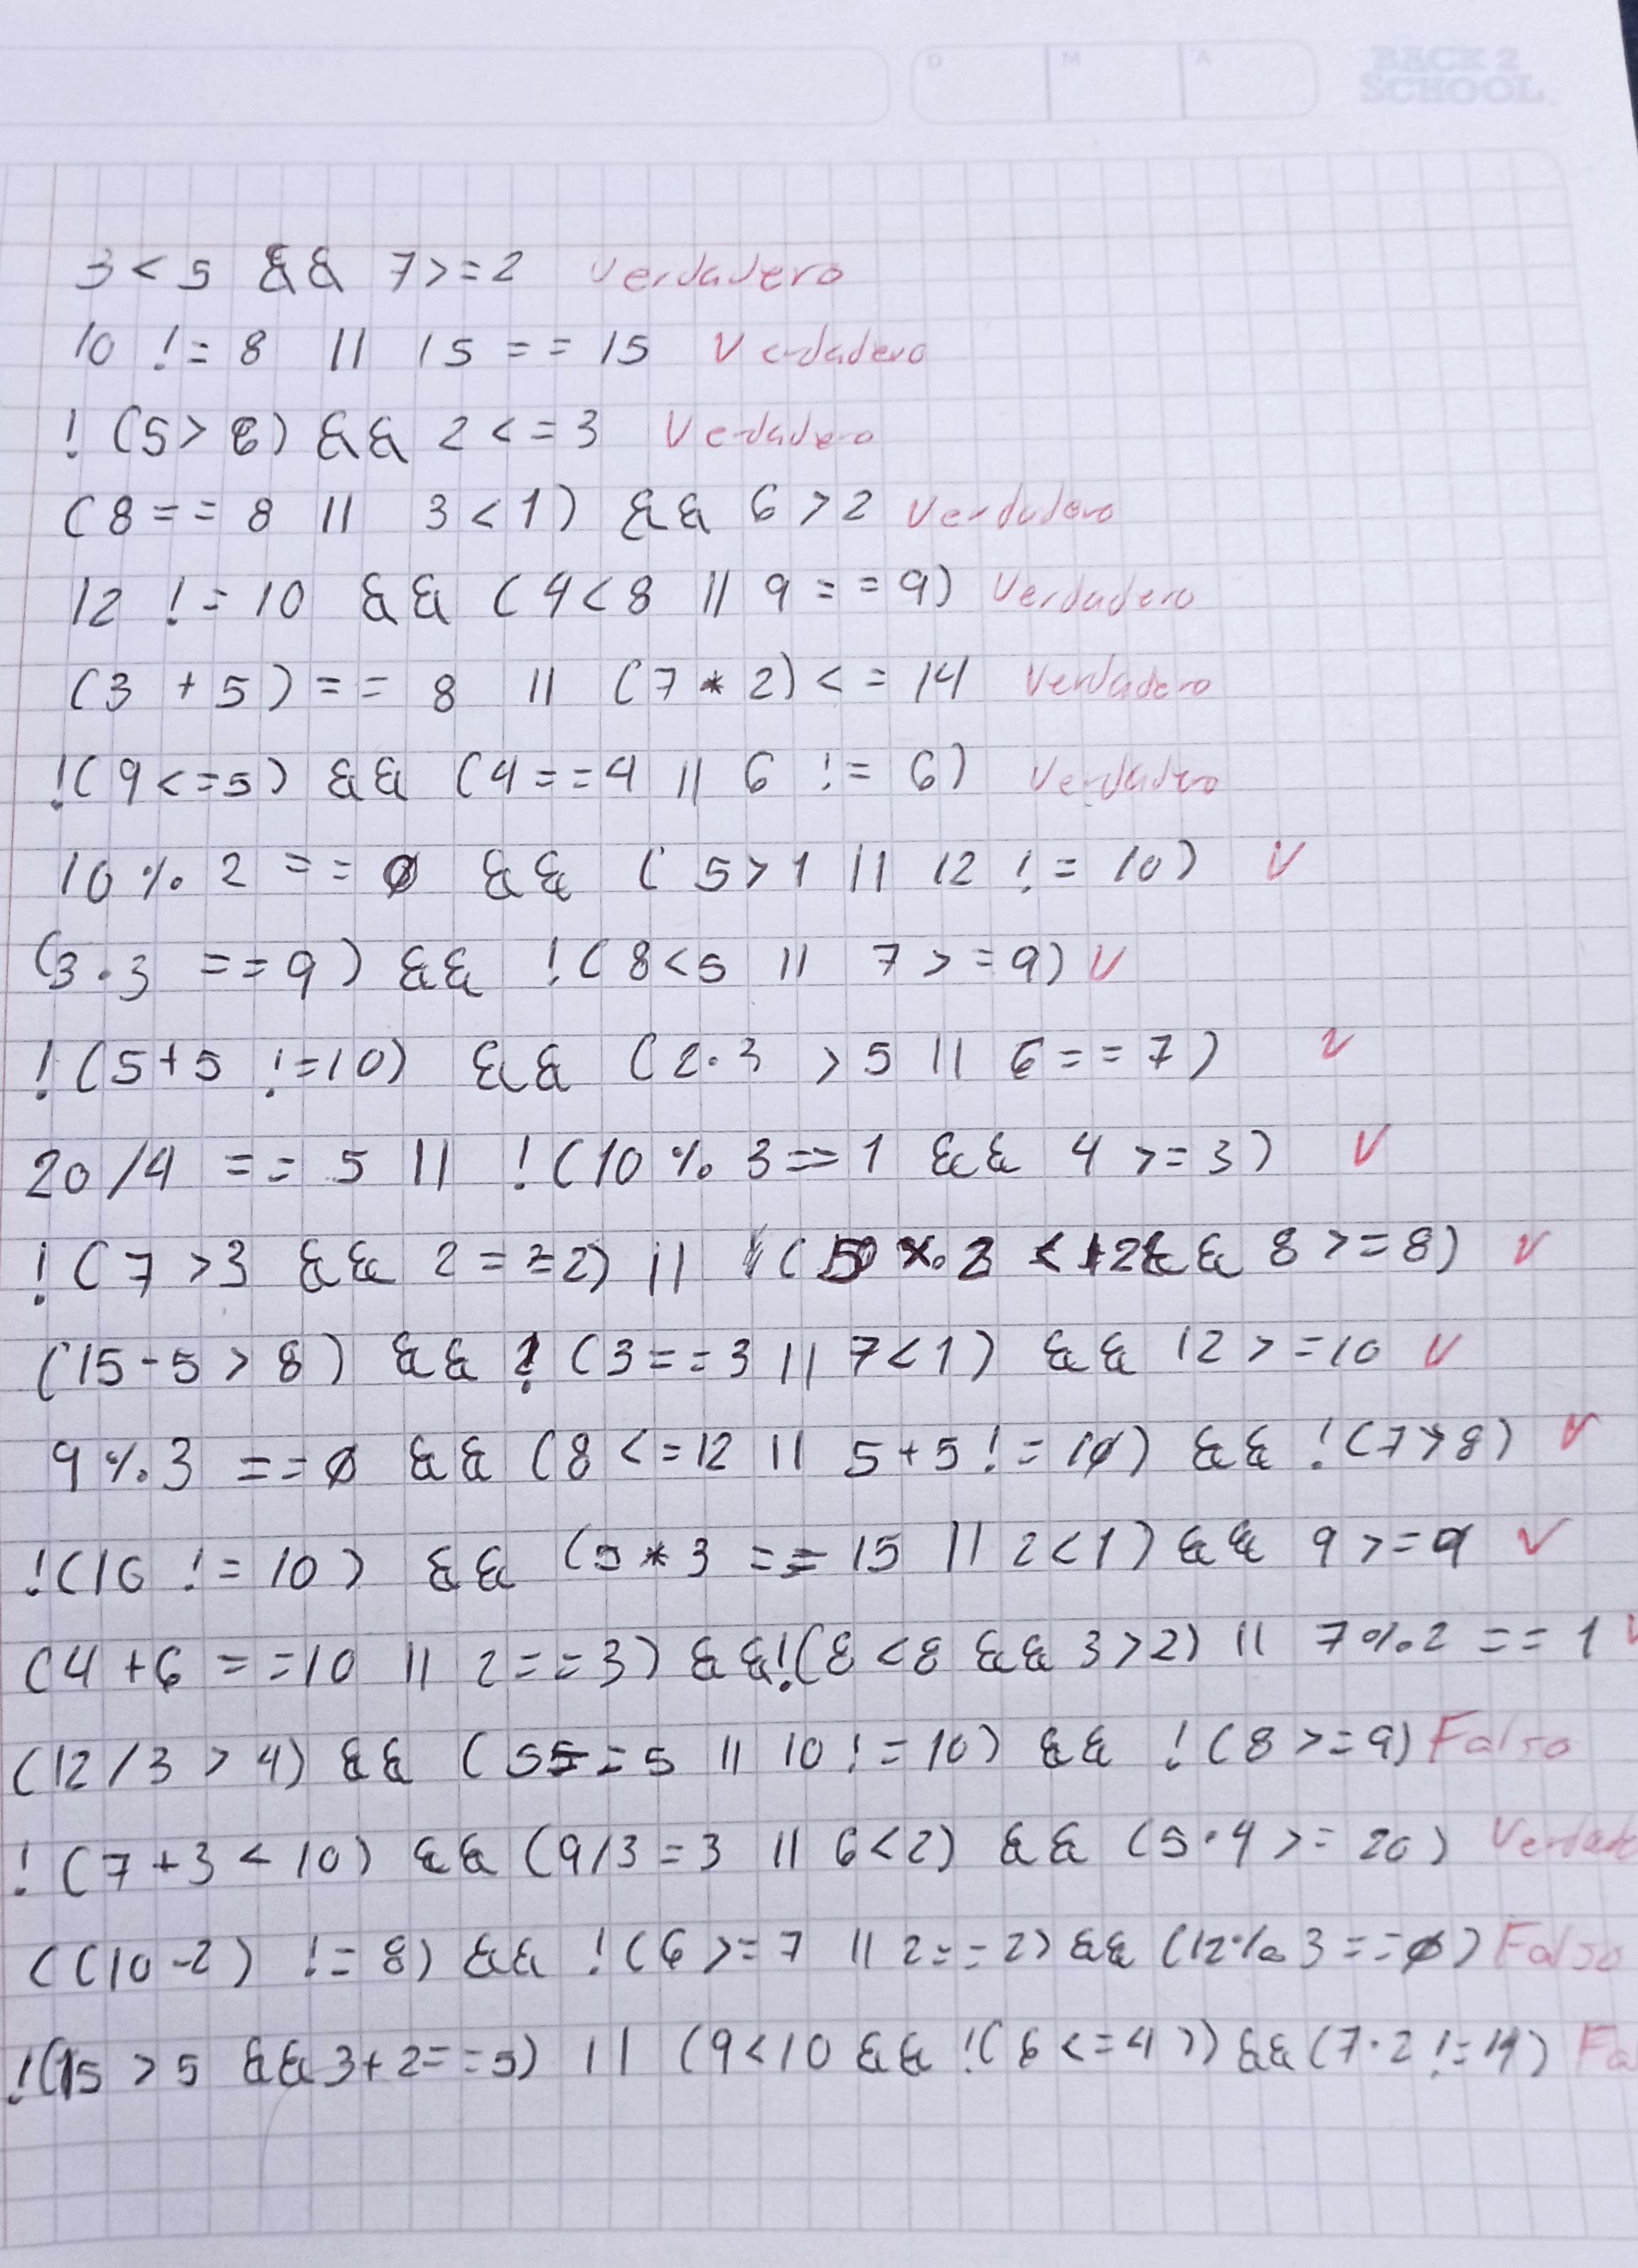 D M A
BACK 2
SCHOOL
3 < 5 && 7 >= 2 Verdadero
10 != 8 || 15 == 15 Verdadero
! (5 > 6) && 2 <= 3 Verdadero
(8 == 8 || 3 < 1) && 6 > 2 Verdadero
12 != 10 && (4 < 8 || 9 == 9) Verdadero
(3 + 5) == 8 || (7 * 2) <= 14 Verdadero
!(9 <= 5) && (4 == 4 || 6 != 6) Verdadero
10 % 2 == 0 && (5 > 1 || 12 != 10) V
(3 · 3 == 9) && !(8 < 5 || 7 >= 9) V
!(5 + 5 != 10) && (2 · 3 > 5 || 6 == 7) V
20 / 4 == 5 || !(10 % 3 == 1 && 4 >= 3) V
!(7 > 3 && 2 == 2) || ( && 8 >= 8) V
(15 - 5 > 8) && (3 == 3 || 7 < 1) && 12 >= 10 V
9 % 3 == 0 && (8 <= 12 || 5 + 5 != 10) && !(7 > 8) V
!(10 != 10) && (5 * 3 == 15 || 2 < 1) && 9 >= 9 V
(4 + 6 == 10 || 2 == 3) && !(8 < 8 && 3 > 2) || 7 % 2 == 1 V
(12 / 3 > 4) && (5 == 5 || 10 != 10) && !(8 >= 9) Falso
!(7 + 3 < 10) && (9 / 3 = 3 || 6 < 2) && (5 · 4 >= 20) Verdade
((10 - 2) != 8) && !(6 >= 7 || 2 == 2) && (12 % 3 == 0) Falso
!(15 > 5 && 3 + 2 == 5) || (9 < 10 && !(6 <= 4)) && (7 · 2 != 14) Fa